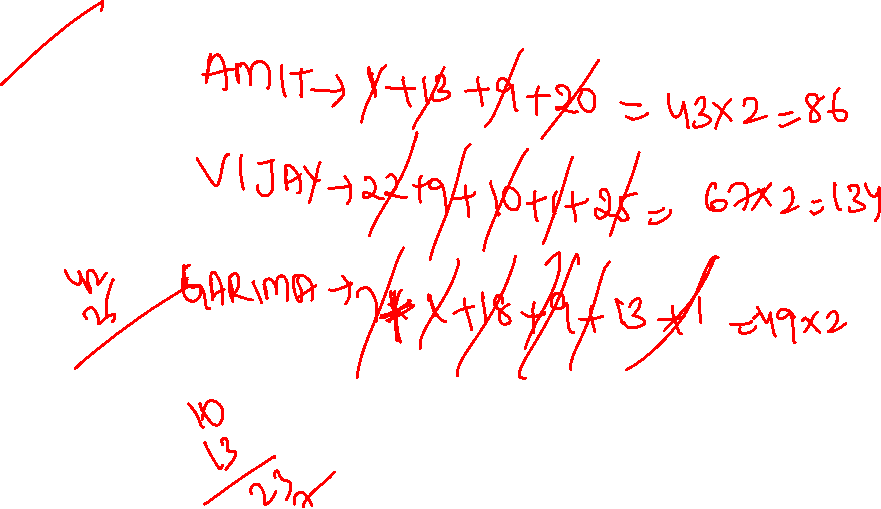 AMIT→ 1+13+9+20 = 43×2=86
VIJAY→22+9+10+1+25= 67×2=134
GARIMA→7 1+18+9+13+1 =49×2
10
13
23